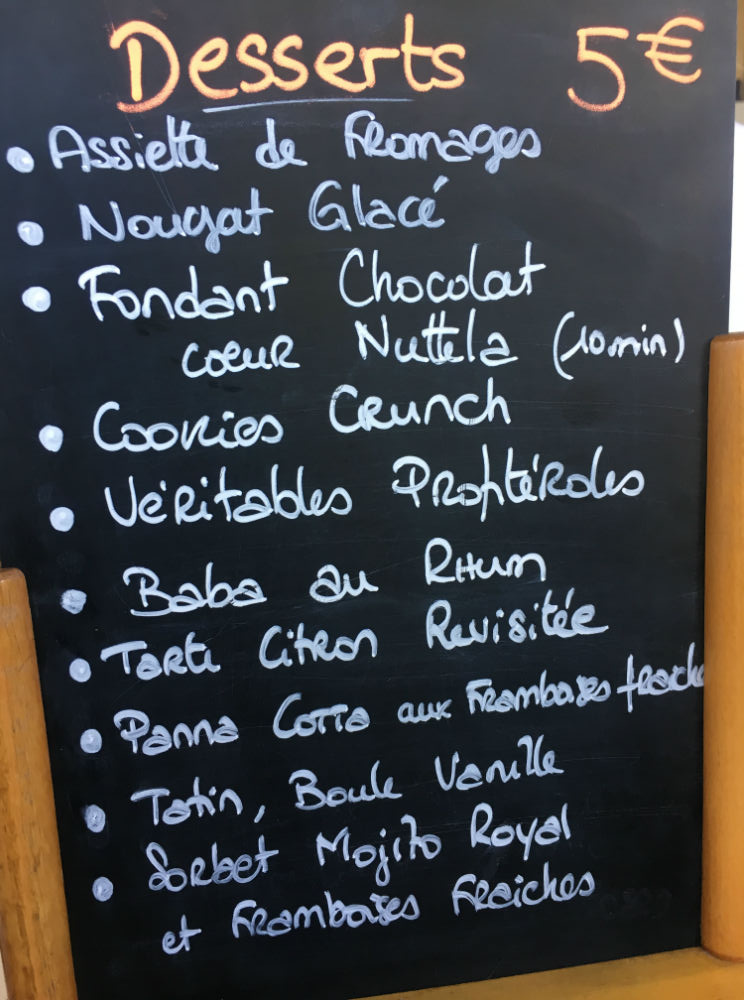 Desserts 5€
• Assiette de Fromages
• Nougat Glacé
• Fondant Chocolat
coeur Nuttela (10min)
• Cookies Crunch
• Véritables Profitéroles
• Baba au Rhum
• Tarte Citron Revisitée
• Panna Cotta aux Framboises
• Tatin, Boule Vanille
• Sorbet Mojito Royal
et Framboises Fraiches